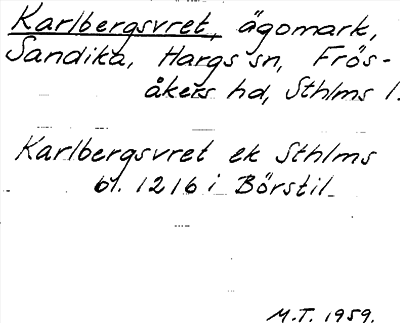 Karlbergsvret, ägomark,
Sandika, Hargs sn, Frös-
åkers hd, Sthlms l.
Karlbergsvret ek Sthlms
bl. 1216 i Börstil
M.T. 1959.